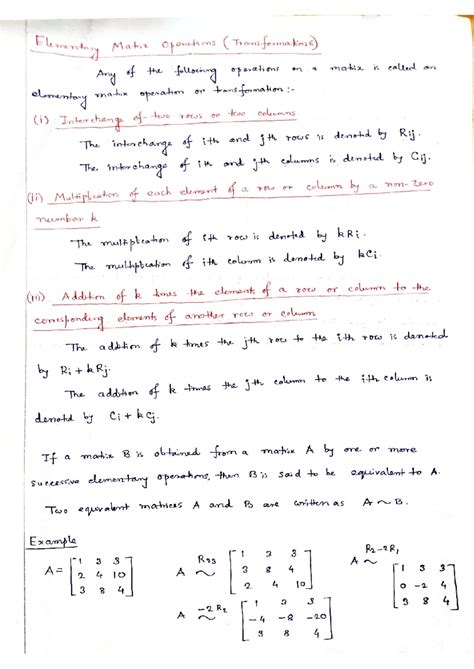 Elementary Matrix Operations (Transformations)
Any of the following operations on a matrix is called an
elementary matrix operation or transformation :-
(i) Interchange of two rows or two columns
The interchange of ith and jth rows is denoted by Rij.
The interchange of ith and jth columns is denoted by Cij.
(ii) Multiplication of each element of a row or column by a non-zero
number k
The multiplication of ith row is denoted by kRi.
The multiplication of ith column is denoted by kCi.
(iii) Addition of k times the elements of a row or column to the
corresponding elements of another row or column
The addition of k times the jth row to the ith row is denoted
by Ri + kRj.
The addition of k times the jth column to the ith column is
denoted by Ci + kCj.
If a matrix B is obtained from a matrix A by one or more
successive elementary operations, then B is said to be equivalent to A.
Two equivalent matrices A and B are written as A ~ B.
Example
A = [1 3 3
2 4 10
3 8 4]
A R23 ~ [1 3 3
3 8 4
2 4 10]
A R2-2R1 ~ [1 3 3
0 -2 4
3 8 4]
A -2R2 ~ [1 3 3
-4 -8 -20
3 8 4]